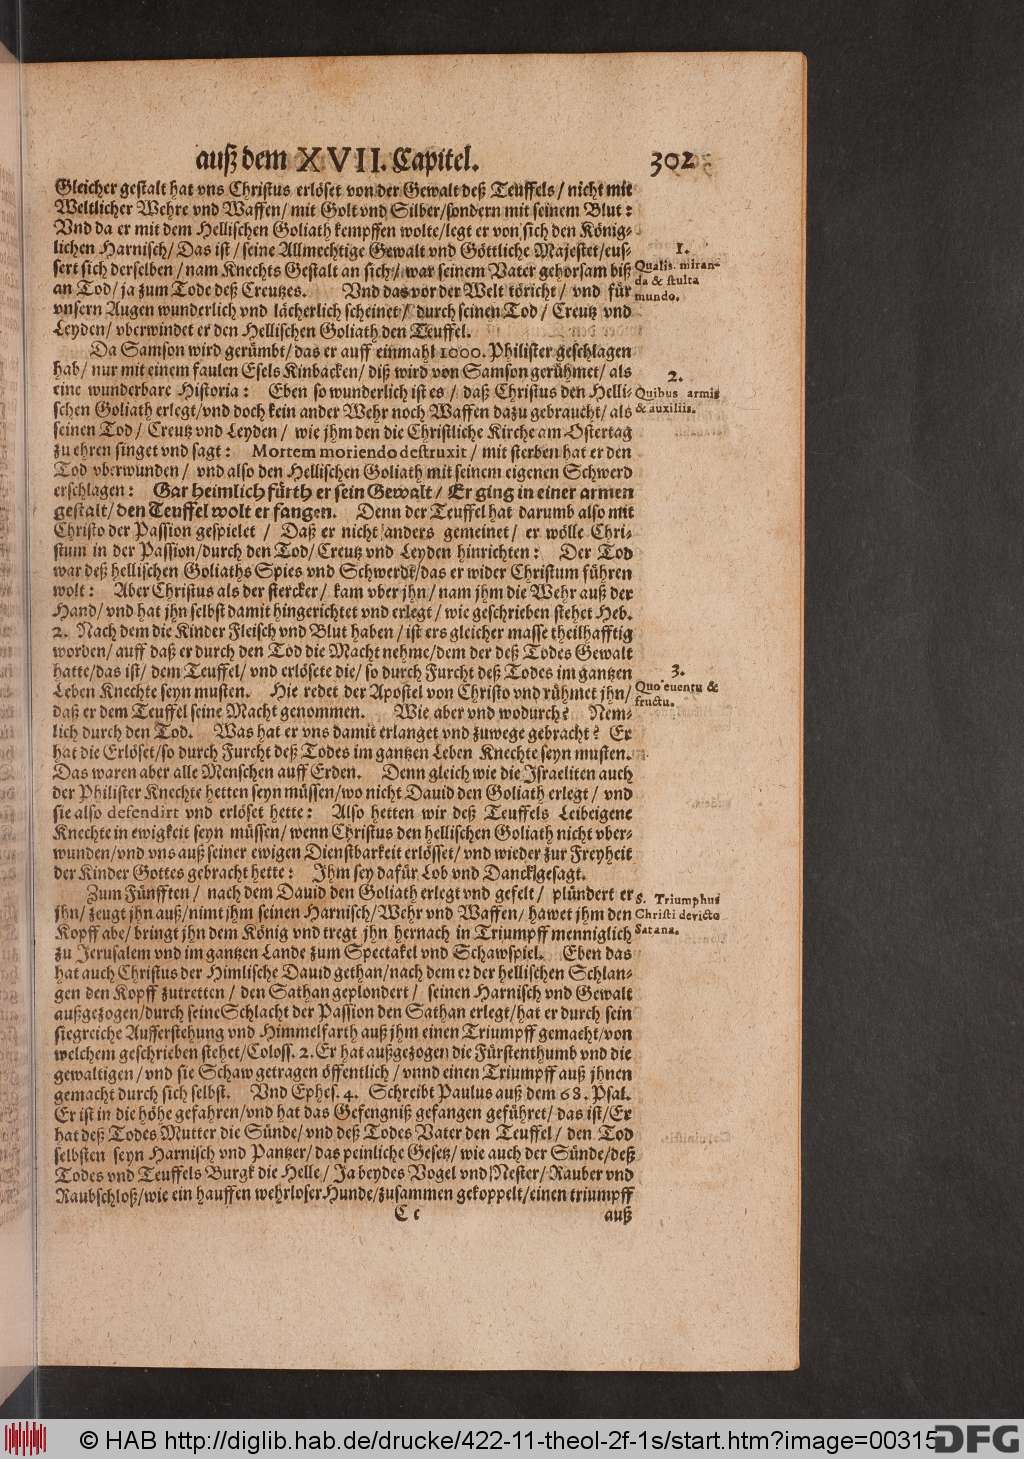 auß dem XVII. Capitel. 302
Gleicher gestalt hat vns Christus erlöset von der Gewalt deß Teuffels / nicht mit
Weltlicher Wehre vnd Waffen / mit Golt vnd Silber / sondern mit seinem Blut :
Vnd da er mit dem Hellischen Goliath kempffen wolte / legt er von sich den König-
lichen Harnisch / Das ist / seine Allmechtige Gewalt vnd Göttliche Majestet / eus-
sert sich derselben / nam Knechts Gestalt an sich / war seinem Vater gehorsam biß
an Tod / ja zum Tode deß Creutzes. Vnd das vor der Welt töricht / vnd für
vnsern Augen wunderlich vnd lächerlich scheinet / durch seinen Tod / Creutz vnd
Leyden / vberwindet er den Hellischen Goliath den Teuffel.
1.
Qualis. miran-
da & stulta
mundo.
Da Samson wird gerümbt / das er auff einmahl 1000. Philister geschlagen
hab / nur mit einem faulen Esels Kinbacken / diß wird von Samson gerühmet / als
eine wunderbare Historia : Eben so wunderlich ist es / daß Christus den Helli-
schen Goliath erlegt / vnd doch kein ander Wehr noch Waffen dazu gebraucht / als
seinen Tod / Creutz vnd Leyden / wie jhm den die Christliche Kirche am Ostertag
zu ehren singet vnd sagt : Mortem moriendo destruxit / mit sterben hat er den
Tod vberwunden / vnd also den Hellischen Goliath mit seinem eigenen Schwerd
erschlagen : Gar heimlich fürth er sein Gewalt / Er ging in einer armen
gestalt / den Teuffel wolt er fangen. Denn der Teuffel hat darumb also mit
Christo der Passion gespielet / Daß er nicht anders gemeinet / er wölle Chri-
stum in der Passion / durch den Tod / Creutz vnd Leyden hinrichten : Der Tod
war deß hellischen Goliaths Spies vnd Schwerdt / das er wider Christum führen
wolt : Aber Christus als der stercker / kam vber jhn / nam jhm die Wehr auß der
Hand / vnd hat jhn selbst damit hingerichtet vnd erlegt / wie geschrieben stehet Heb.
2. Nach dem die Kinder Fleisch vnd Blut haben / ist ers gleicher masse theilhafftig
worden / auff daß er durch den Tod die Macht nehme / dem der deß Todes Gewalt
hatte / das ist / dem Teuffel / vnd erlösete die / so durch Furcht deß Todes im gantzen
Leben Knechte seyn musten. Hie redet der Apostel von Christo vnd rühmet jhn /
daß er dem Teuffel seine Macht genommen. Wie aber vnd wodurch? Nem-
lich durch den Tod. Was hat er vns damit erlanget vnd zuwege gebracht? Er
hat die Erlöset / so durch Furcht deß Todes im gantzen Leben Knechte seyn musten.
Das waren aber alle Menschen auff Erden. Denn gleich wie die Israeliten auch
der Philister Knechte hetten seyn müssen / wo nicht Dauid den Goliath erlegt / vnd
sie also defendirt vnd erlöset hette : Also hetten wir deß Teuffels Leibeigene
Knechte in ewigkeit seyn müssen / wenn Christus den hellischen Goliath nicht vber-
wunden / vnd vns auß seiner ewigen Dienstbarkeit erlösset / vnd wieder zur Freyheit
der Kinder Gottes gebracht hette : Ihm sey dafür Lob vnd Danck gesagt.
2.
Quibus armis
& auxiliis.
3.
Quo euentu &
fructu.
Zum Fünfften / nach dem Dauid den Goliath erlegt vnd gefelt / plündert er
jhn / zeugt jhn auß / nimt jhm seinen Harnisch / Wehr vnd Waffen / hawet jhm den
Kopff abe / bringt jhn dem König vnd tregt jhn hernach in Triumpff menniglich
zu Jerusalem vnd im gantzen Lande zum Spectakel vnd Schawspiel. Eben das
hat auch Christus der Himlische Dauid gethan / nach dem er der hellischen Schlan-
gen den Kopff zutretten / den Sathan geplondert / seinen Harnisch vnd Gewalt
außgezogen / durch seine Schlacht der Passion den Sathan erlegt / hat er durch sein
siegreiche Aufferstehung vnd Himmelfarth auß jhm einen Triumpff gemacht / von
welchem geschrieben stehet / Coloss. 2. Er hat außgezogen die Fürstenthumb vnd die
gewaltigen / vnd sie Schaw getragen öffentlich / vnnd einen Triumpff auß jhnen
gemacht durch sich selbst. Vnd Ephes. 4. Schreibt Paulus auß dem 68. Psal.
Er ist in die höhe gefahren / vnd hat das Gefengniß gefangen geführet / das ist / Er
hat deß Todes Mutter die Sünde / vnd deß Todes Vater den Teuffel / den Tod
selbsten seyn Harnisch vnd Pantzer / das peinliche Gesetz / wie auch der Sünde / deß
Todes vnd Teuffels Burgk die Helle / Ja beydes Vogel vnd Nester / Rauber vnd
Raubschloß / wie ein hauffen wehrloser Hunde / zusammen gekoppelt / einen triumpff
5. Triumphus
Christi devicto
Satana.
C c auß
© HAB http://diglib.hab.de/drucke/422-11-theol-2f-1s/start.htm?image=00315
DFG